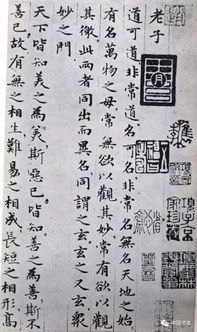 老子
道可道非常道名可名非常名無名天地之始
有名萬物之母常無欲以觀其妙常有欲以觀
其徼此兩者同出而異名同謂之玄玄之又玄衆
妙之門
天下皆知美之為美斯惡已皆知善之為善斯不
善已故有無之相生難易之相成長短之相形高
中国书法